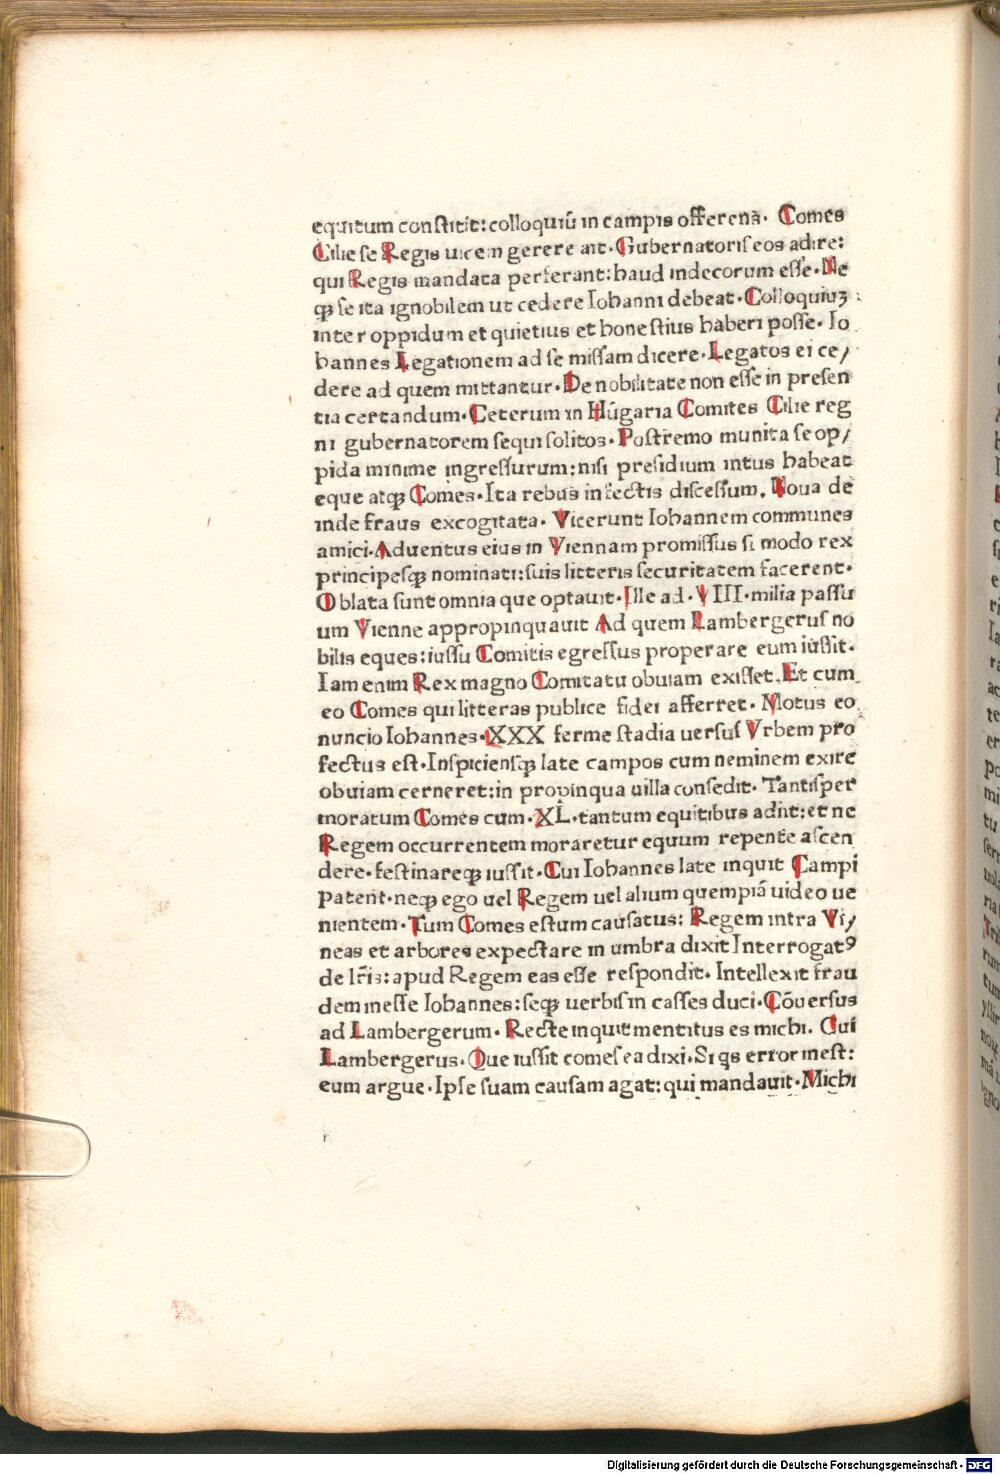 equitum conſtitit: colloquiū in campis offerens. Comes
Cilie ſe Regis uicem gerere ait. Gubernatoriſ eos adire:
qui Regis mandata perferant: haud indecorum eſſe. Ne
qꝫ ſe ita ignobilem ut cedere Iohanni debeat. Colloquiuꝫ
inter oppidum et quietius et honeſtius haberi poſſe. Io
hannes Legationem ad ſe miſſam dicere. Legatos ei ce/
dere ad quem mittantur. De nobilitate non eſſe in preſen
tia certandum. Ceterum in Hūgaria Comites Cilie reg
ni gubernatorem ſequi ſolitos. Poſtremo munita ſe op/
pida minime ingreſſurum: niſi preſidium intus habeat
eque atqꝫ Comes. Ita rebus infectis diſceſſum. Noua de
inde fraus excogitata. Vicerunt Iohannem communes
amici. Aduentus eius in Viennam promiſſus ſi modo rex
principeſqꝫ nominati: ſuis litteris ſecuritatem facerent.
Oblata ſunt omnia que optauit. Ille ad. VIII. milia paſſu
um Vienne appropinquauit Ad quem Lambergeruſ no
bilis eques: iuſſu Comitis egreſſus properare eum iuſſit.
Iam enim Rex magno Comitatu obuiam exiſſet. Et cum
eo Comes qui litteras publice fidei afferret. Motus eo
nuncio Iohannes. XXX ferme ſtadia uerſuſ Vrbem pro
fectus eſt. Inſpicienſqꝫ late campos cum neminem exire
obuiam cerneret: in propinqua uilla conſedit. Tantiſper
moratum Comes cum. XL. tantum equitibus adiit: et ne
Regem occurrentem moraretur equum repente aſcen
dere. feſtinareqꝫ iuſſit. Cui Iohannes late inquit Campi
patent. neqꝫ ego uel Regem uel alium quempiā uideo ue
nientem. Tum Comes eſtum cauſatus: Regem intra Vi/
neas et arbores expectare in umbra dixit Interrogatꝰ
de lr̄is: apud Regem eas eſſe reſpondit. Intellexit frau
dem ineſſe Iohannes: ſeqꝫ uerbiſ in caſſes duci. Cōuerſus
ad Lambergerum. Recte inquit mentitus es michi. Cui
Lambergerus. Que iuſſit comeſ ea dixi. Si qs error ineſt:
eum argue. Ipſe ſuam cauſam agat: qui mandauit. Michi
Digitalisierung gefördert durch die Deutsche Forschungsgemeinschaft - DFG